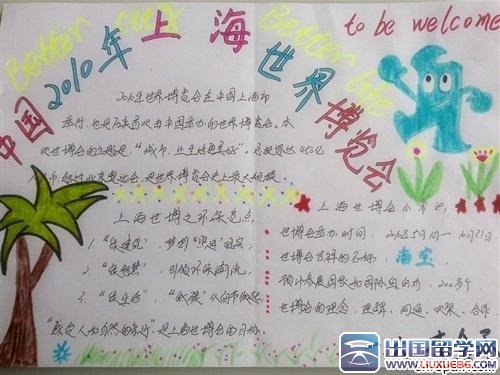 Better city
Better life
to be welcome
中国2010年上海世界博览会
2010年世界博览会在中国上海市
举行,也是历来首次由中国举办的世界博览会。本
次世博会的主题是:“城市,让生活更美好”。总投资达450亿
是世界博览会史上最大规模
上海世博之环保亮点
1.“绿建筑”
2.“绿
3.“绿生活”:“低碳”
是上海世博会的目标。
上海世博会小常识
世博会举办时间:2010年5月1日—10月31日
世博会吉祥的名称:海宝
预计参展国家和国际组织有:200多个
世博会的理念:理解、沟通、欢聚、合作
出国留学网
www.liuxue86.com